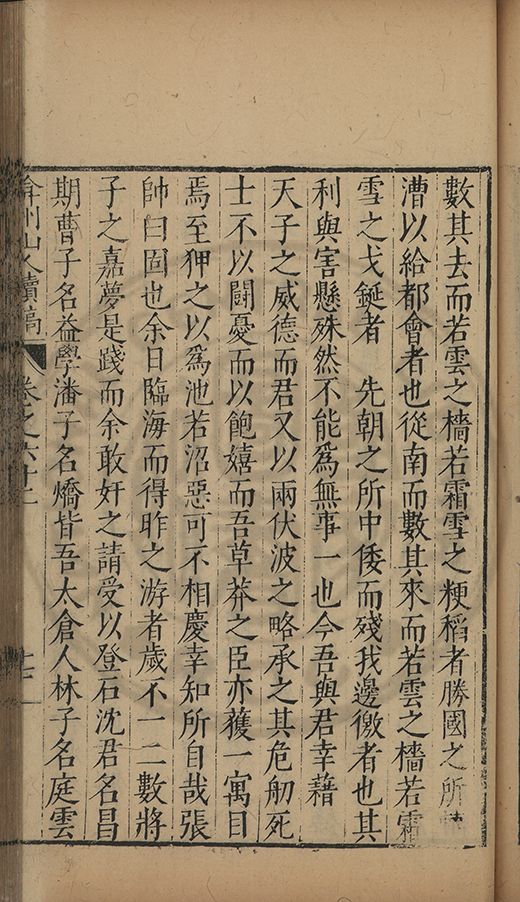 數其去而若雲之檣若霜雪之粳稻者勝國之所
漕以給都會者也從南而數其來而若雲之檣若霜
雪之戈鋋者　先朝之所中倭而殘我邊徼者也其
利與害懸殊然不能爲無事一也今吾與君幸藉
天子之威德而君又以兩伏波之略承之其危舠死
士不以鬭憂而以飽嬉而吾草莽之臣亦獲一寓目
焉至狎之以爲池若沼惡可不相慶幸知所自哉張
帥曰固也余日臨海而得昨之游者歲不一二數將
子之嘉夢是踐而余敢奸之請受以登石沈君名昌
期曹子名益學潘子名燆皆吾太倉人林子名庭雲
弇州山人續稿
卷之六十二